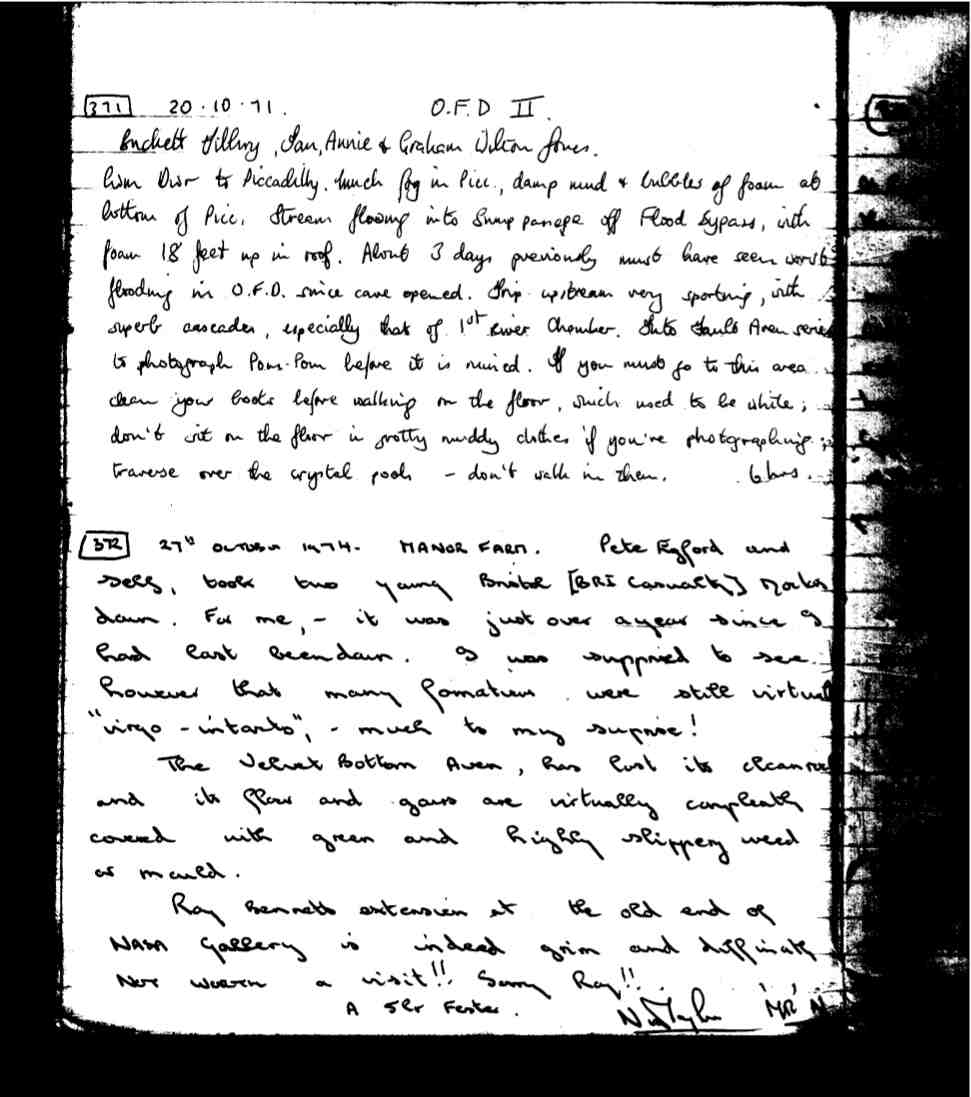 371 20.10.71. O.F.D II.
Buckett Tilbury, Ian, Annie & Graham Wilton Jones.
to Piccadilly. Much fog in Picc., damp mud & bubbles of foam at
bottom of Picc. Stream flowing into Sump passage off Flood Bypass, with
foam 18 feet up in roof. About 3 days previously must have seen worst
flooding in O.F.D. since cave opened. Trip upstream very sporting, with
superb cascades, especially that of 1st River Chamber. Into Fault Aven series
to photograph Pom-Pom before it is ruined. If you must go to this area
clean your boots before walking on the floor, which used to be white;
don't sit on the floor in grotty muddy clothes if you're photographing;
traverse over the crystal pools - don't walk in them. 6 hrs.
372 27th October 1974. MANOR FARM. Pete and
self, took two young Bristol [BRI Casualty]
down. For me, - it was just over a year since I
had last been down. I was supprised to see
however that many formations were still virtual
"virgo - intacto", - much to my suprise!
The Velvet Bottom Aven, has lost its
and its flow and are virtually compleatly
covered with green and highly slippery weed
or mould.
Ray Bennetts extension at the old end of
NASA Gallery is indeed grim and
Not worth a visit!! Sorry Ray!!
A 5hr
'MR' N